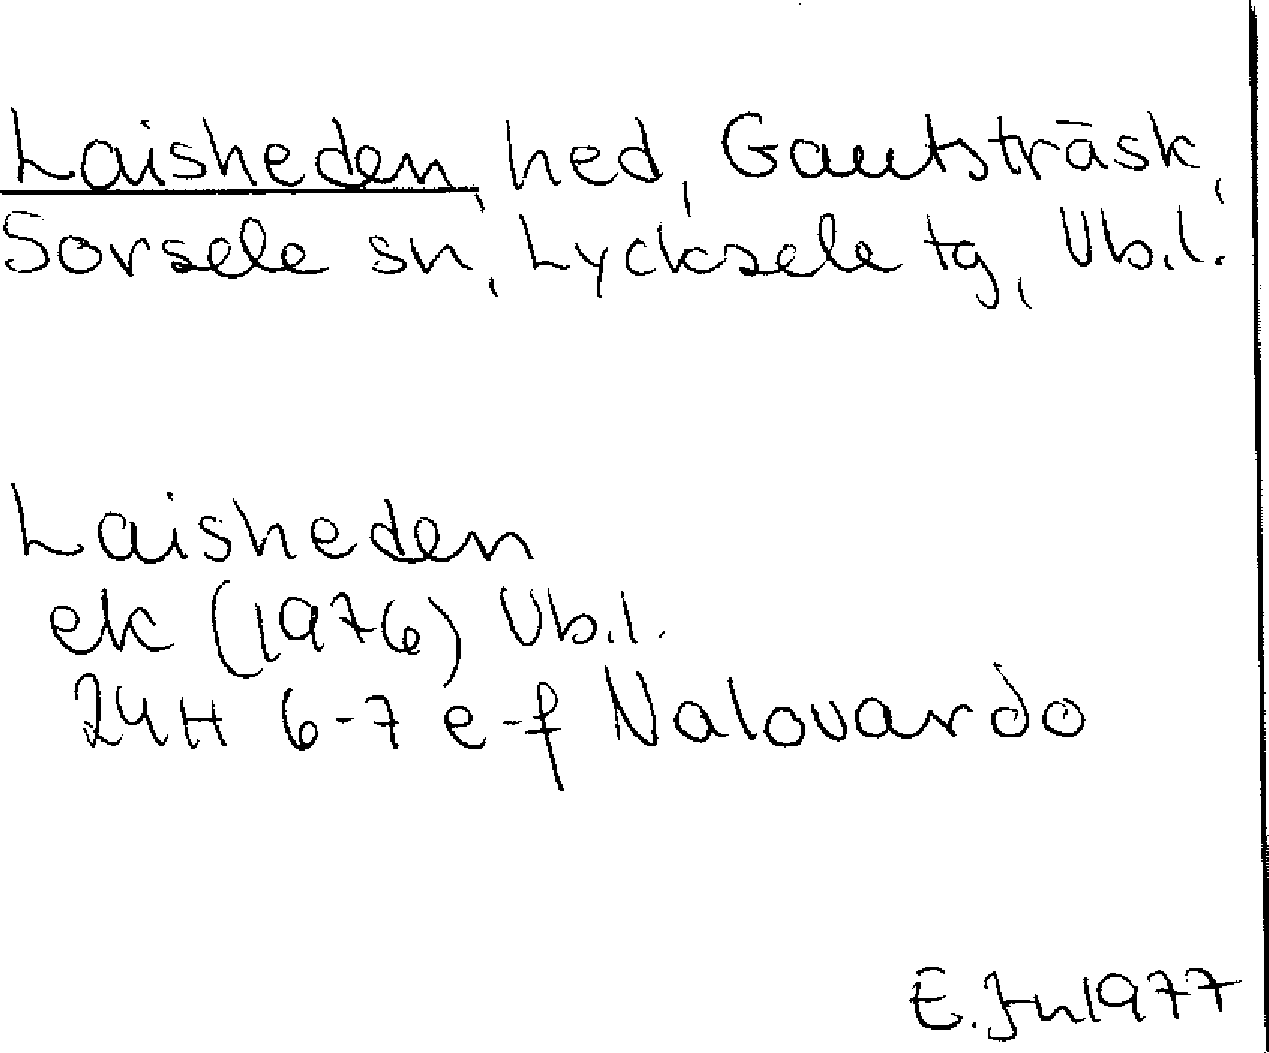 Laisheden, hed, Gautsträsk,
Sorsele sn, Lycksele tg, Vb.l.
Laisheden
ek (1976) Vb.l.
24H 6-7 e-f Nalovardo
E.Jn 1977